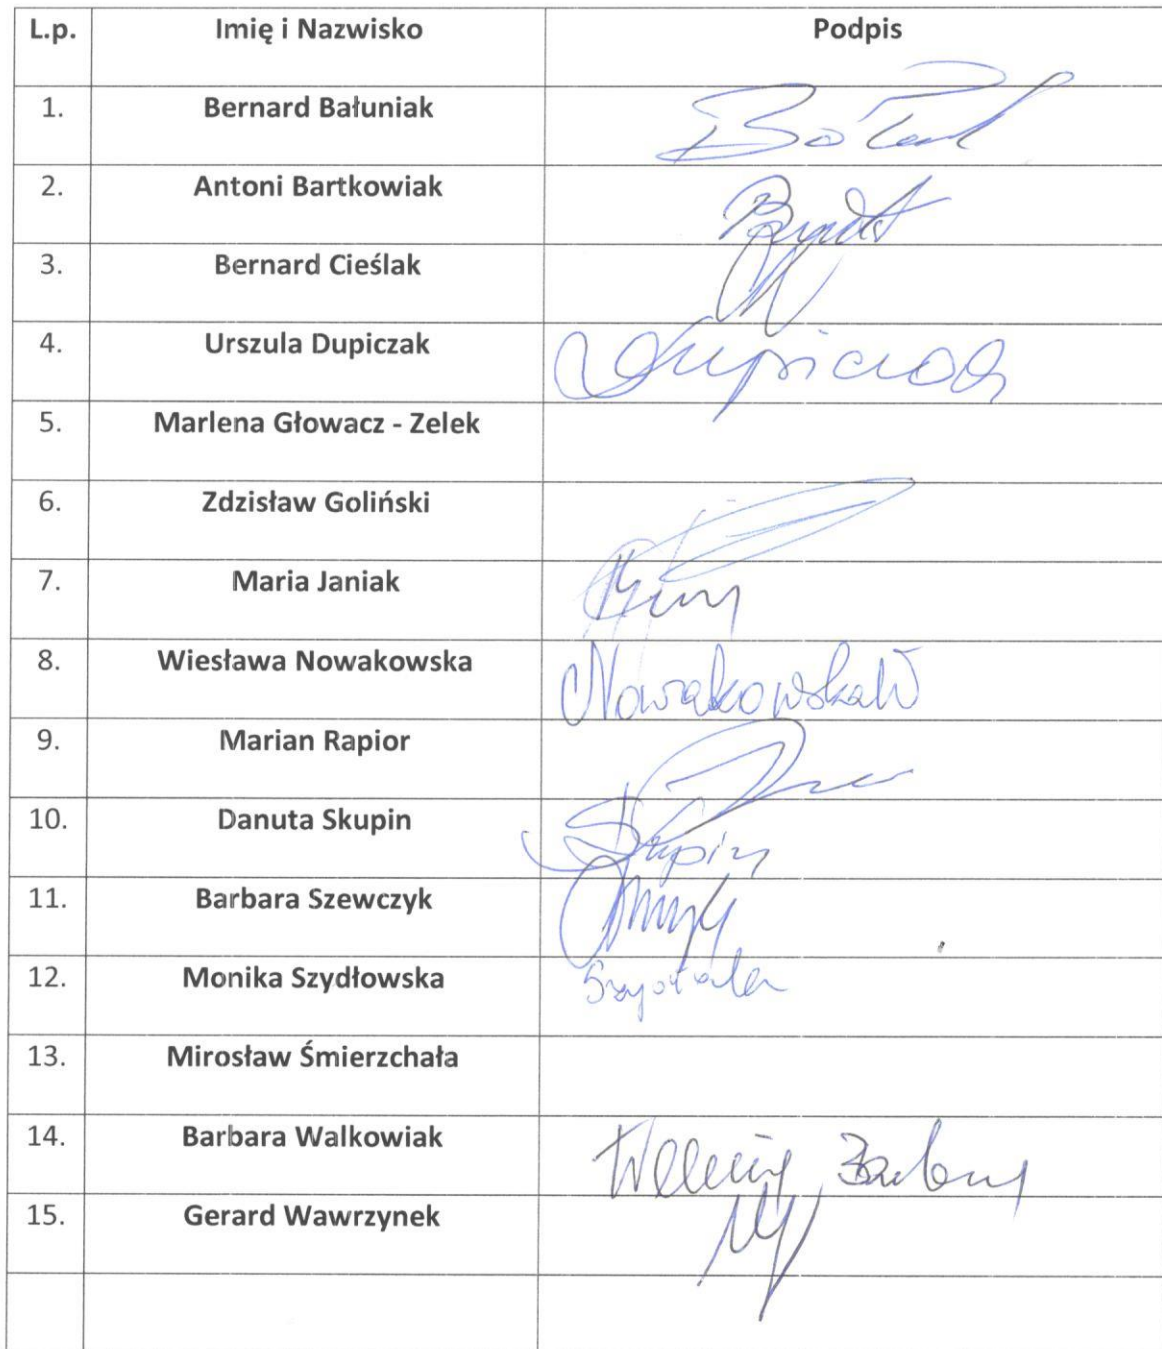 L.p. Imię i Nazwisko Podpis
1. Bernard Bałuniak
2. Antoni Bartkowiak
3. Bernard Cieślak
4. Urszula Dupiczak
5. Marlena Głowacz - Zelek
6. Zdzisław Goliński
7. Maria Janiak
8. Wiesława Nowakowska Nowakowska W
9. Marian Rapior
10. Danuta Skupin Skupin
11. Barbara Szewczyk
12. Monika Szydłowska
13. Mirosław Śmierzchała
14. Barbara Walkowiak
15. Gerard Wawrzynek